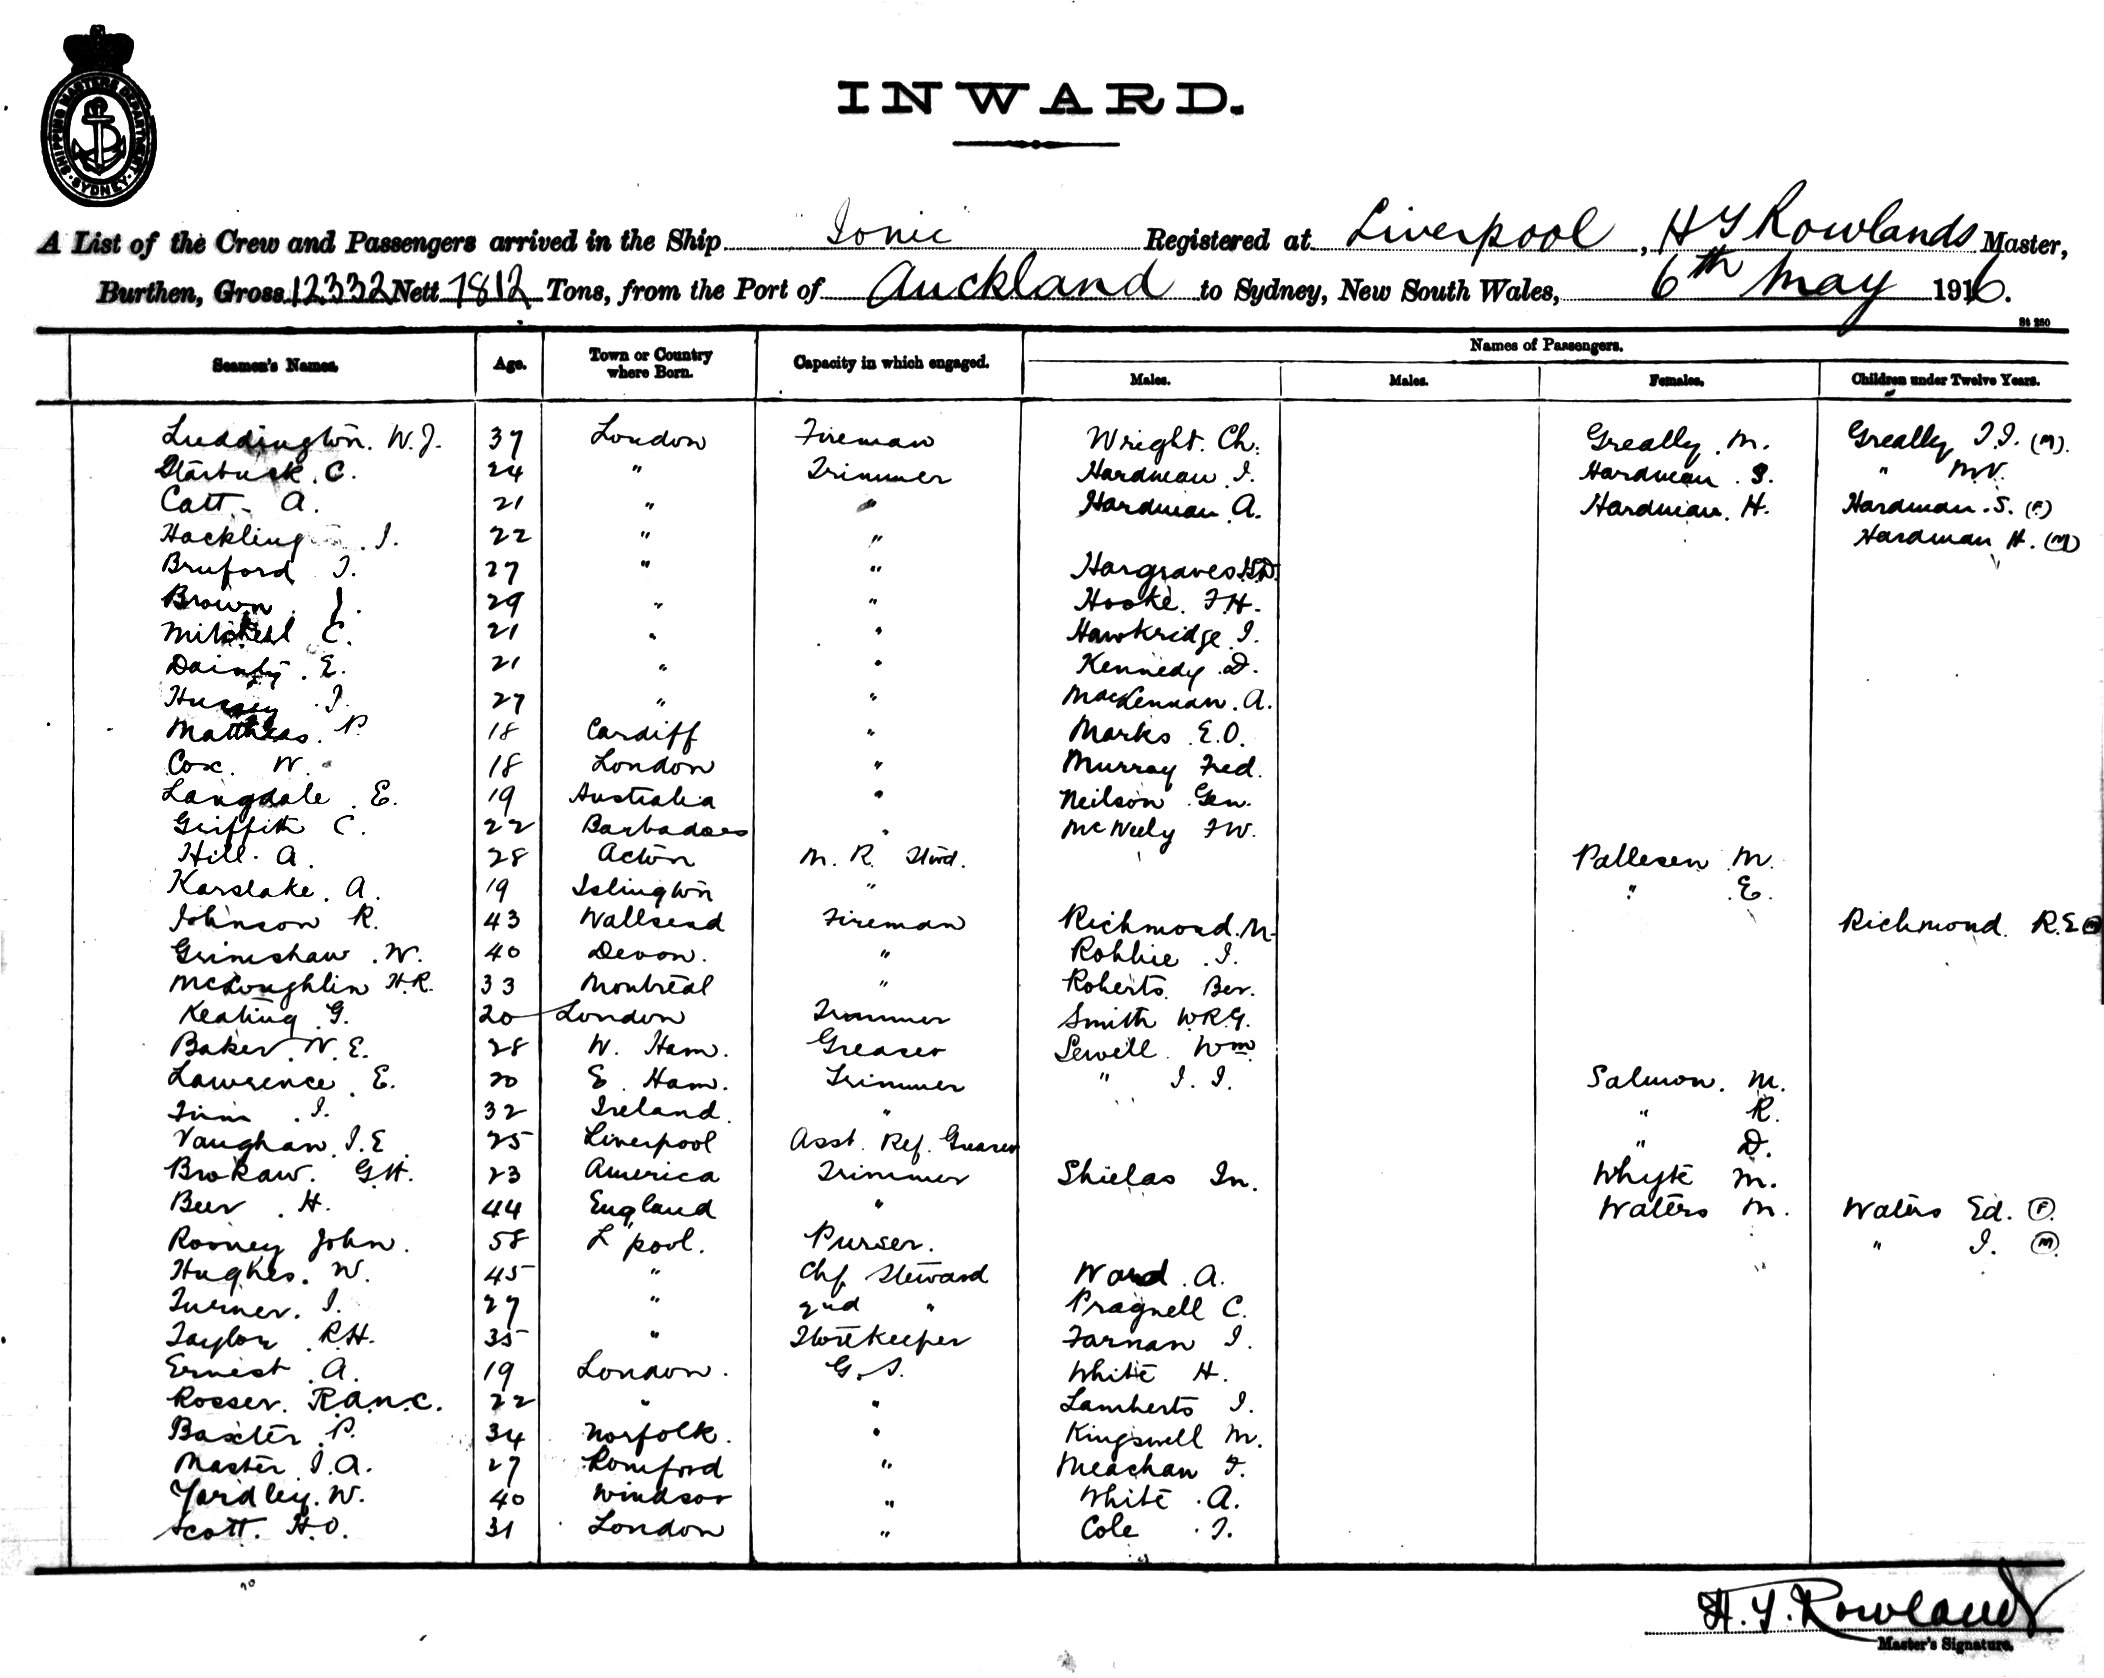 SHIPPING MASTERS DEPARTMENT
SYDNEY
INWARD.
A List of the Crew and Passengers arrived in the Ship Ionic Registered at Liverpool, H Y Rowlands Master,
Burthen, Gross 12332 Nett 7812 Tons, from the Port of Auckland to Sydney, New South Wales, 6th May 1916.
St 250
Seamen's Names. Age. Town or Country where Born. Capacity in which engaged. Names of Passengers.
Males. Males. Females. Children under Twelve Years.
Luddington. W.J. 37 London Fireman Wright. Ch. Greally M. Greally J.J. (M).
Starbuck. C. 24 " Trimmer Hardman. I. Hardman. S. " M.V.
Catt. A. 21 " " Hardman A. Hardman. H. Hardman. S. (F)
Hackling I. 22 " " Hardman H. (M)
Bruford I. 27 " " Hargraves
Brown J. 29 " " Hooke. F.H.
Mitchell C. 21 " " Hawkridge I.
Dainty. E. 21 " " Kennedy D.
Hussey I. 27 " " MacLennan. A.
Matthias. P. 18 Cardiff " Marks E.O.
Cox. W. 18 London " Murray Fred.
Langdale E. 19 Australia " Neilson Geo.
Griffith C. 22 Barbadoes " McNeely F.W.
Hill. A. 28 Acton M. R. Stwd. Pallesen M.
Karslake. A. 19 Islington " " E.
Johnson R. 43 Wallsend Fireman Richmond. M. Richmond R.E (M)
Grimshaw. W. 40 Devon. " Robbie I.
McLoughlin H.R. 33 Montreal " Roberts Ber.
Keating G. 20 London Trimmer Smith W.R.G.
Baker. W.E. 28 W. Ham. Greaser Sewell Wm
Lawrence. E. 20 E. Ham. Trimmer " I. I. Salmon. M.
I. 32 Ireland. " " R.
Vaughan. I.E. 25 Liverpool Asst. Ref. Greaser " D.
Brokaw. G.H. 23 America Trimmer Shielas Jn. Whyte M.
Beer. H. 44 England " Waters M. Waters Ed. (F)
Rooney John. 58 L'pool. Purser. " I. (M)
Hughes. W. 45 " Chf Steward Ward. A.
Turner. I. 27 " 2nd " Pragnell C.
Taylor R.H. 35 " Storekeeper Farnan I.
Ernest. A. 19 London. G.S. White H.
Rosser. R.A.N.C. 22 " " Lamberts I.
Baxter. P. 34 Norfolk. " Kingswell M.
Master I.A. 27 Romford " Meachan F.
Yardley. W. 40 Windsor " White A.
Scott. H.O. 31 London " Cole I.
H. Y. Rowlands
Master's Signature.